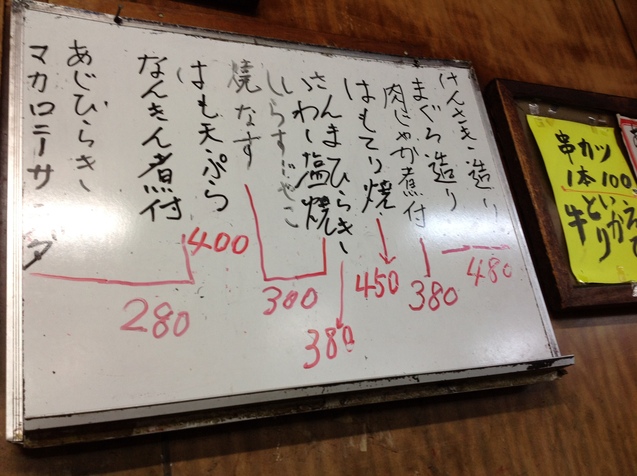 けんさき造り
まぐろ造り
肉じゃが煮付
はもてり焼
さんまひらき
いわし塩焼
しらすじゃこ
焼なす
はも天ぷら
なんきん煮付
あじひらき
マカロニーサラダ
480
380
450
380
300
400
280
串カツ
1本100
牛とり